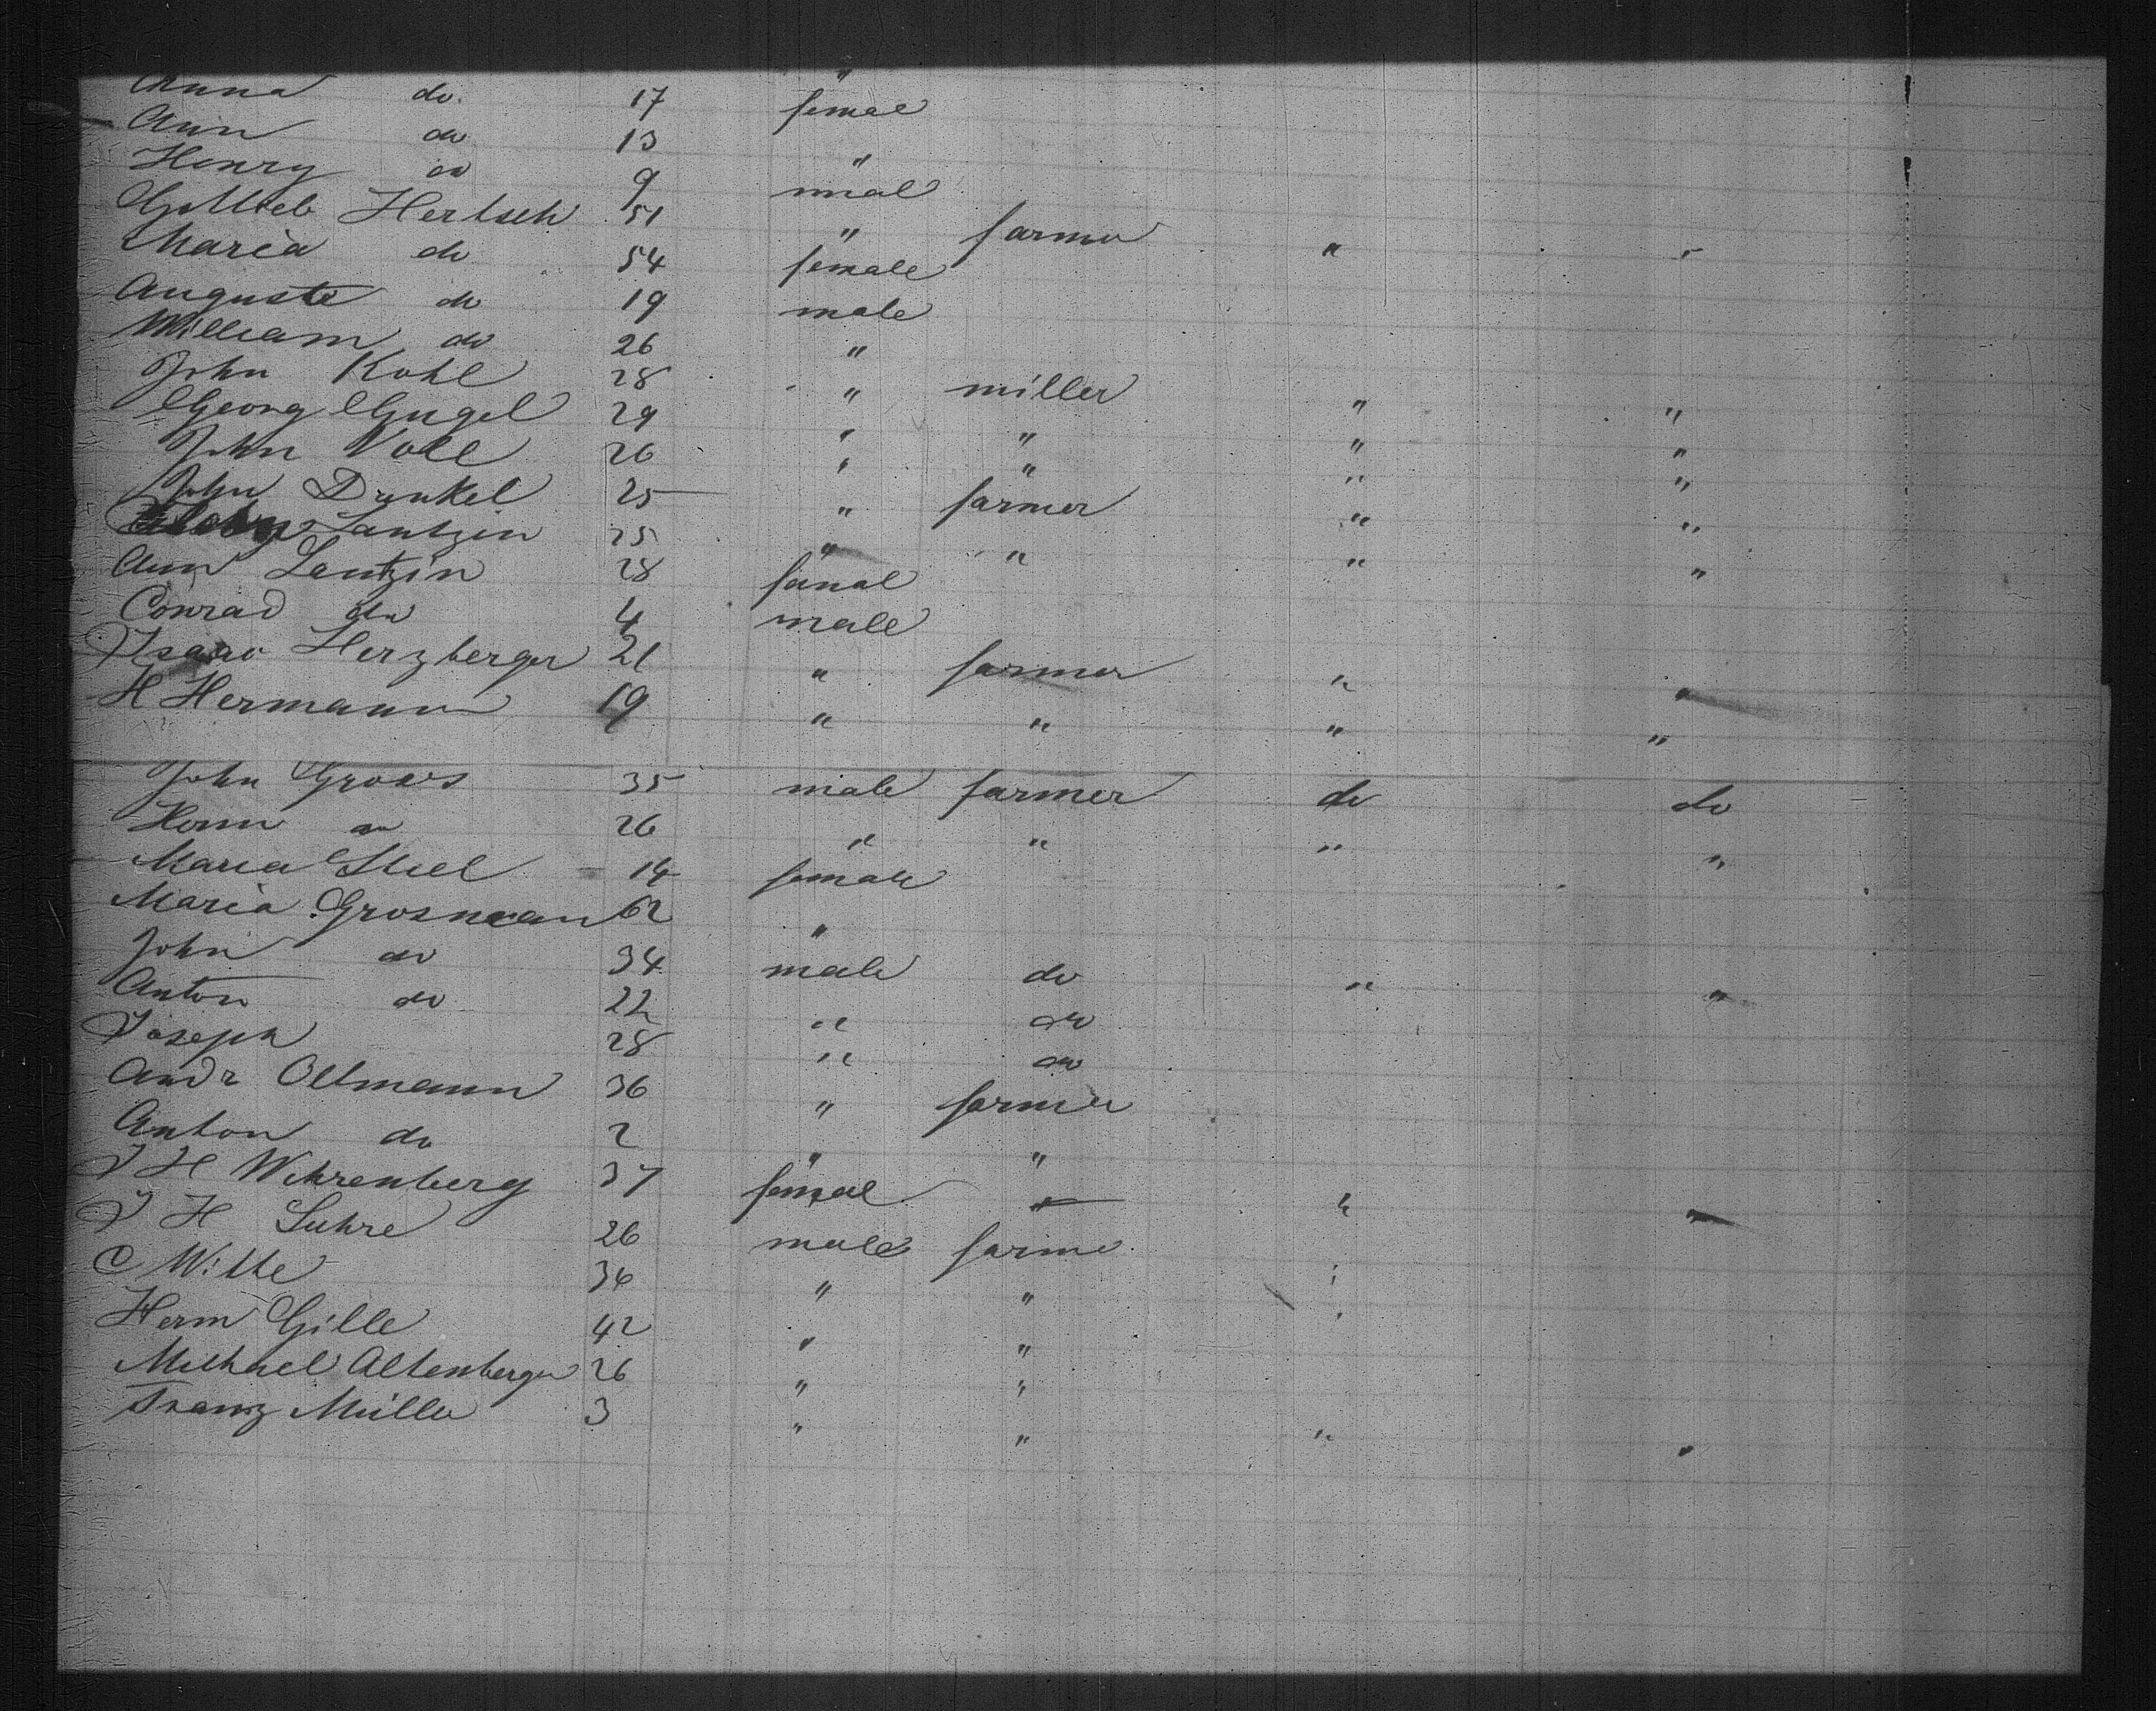 Anna do 17 femal
Ann do 13 "
Henry do 9 mal
Gottlieb Hertsch 51 " farmer " "
Maria do 54 female
Auguste do 19 male
William do 26 "
John Kohl 28 " miller " "
Georg Gugel 29 " " " "
John Voll 26 " " " "
John Dunkel 25 " farmer " "
Lantzin 25 " " " "
Ann Lantzin 28 femal
Conrad do 4 male
Isaac Herzberger 21 " farmer " "
H Hermann 19 " " " "
John Gross 35 male farmer do do
Herm do 26 " " " "
Maria 14 female
Maria Grosmann 62 "
John do 34 male do " "
Anton do 22 " do
Joseph 28 " do
Andr Oltmann 36 " farmer
Anton do 2 " "
J H Wehrenberg 37 femal " " "
J H Suhre 26 male farmer
C Witte 36 " " "
Herm Gille 42 " "
Michael Altenberger 26 " "
Franz Müller 3 " " " "